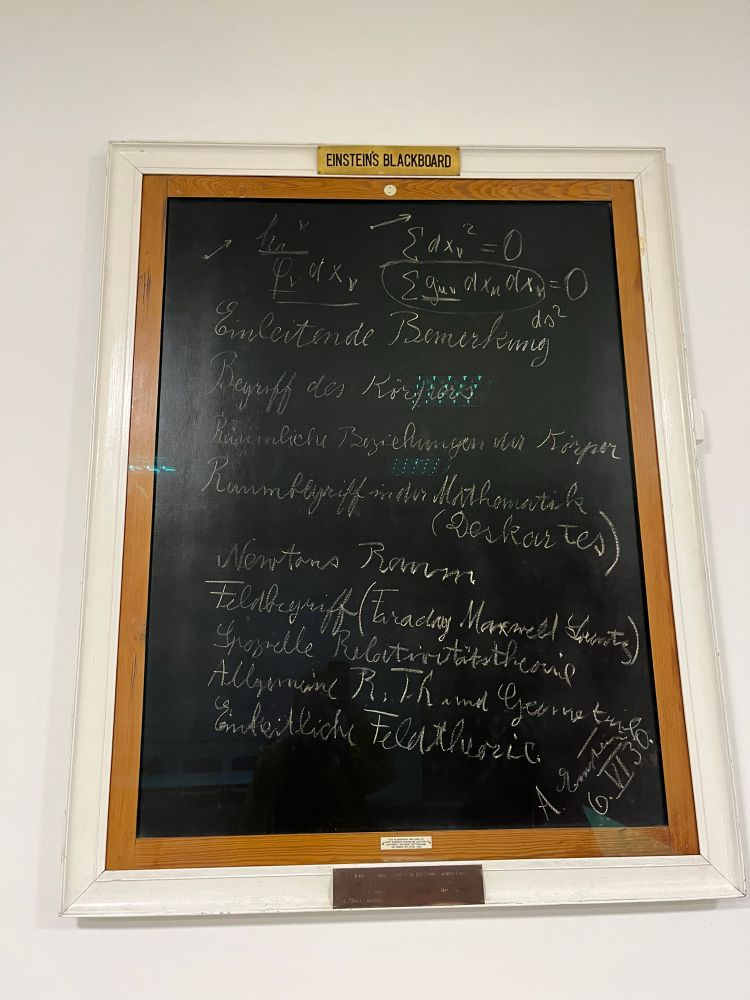 EINSTEIN'S BLACKBOARD
Σ dxᵥ² = 0
φᵥ dxᵥ
Σ gμν dxμ dxν = 0
ds²
Einleitende Bemerkung
Begriff des Körpers
Räumliche Beziehungen der Körper
Raumbegriff in der Mathematik
(Deskartes)
Newtons Raum
Feldbegriff (Faraday Maxwell Lorentz)
Spezielle Relativitätstheorie
Allgemeine R. Th. und Geometrie
Einheitliche Feldtheorie.
A. Einstein
6. VI 30.